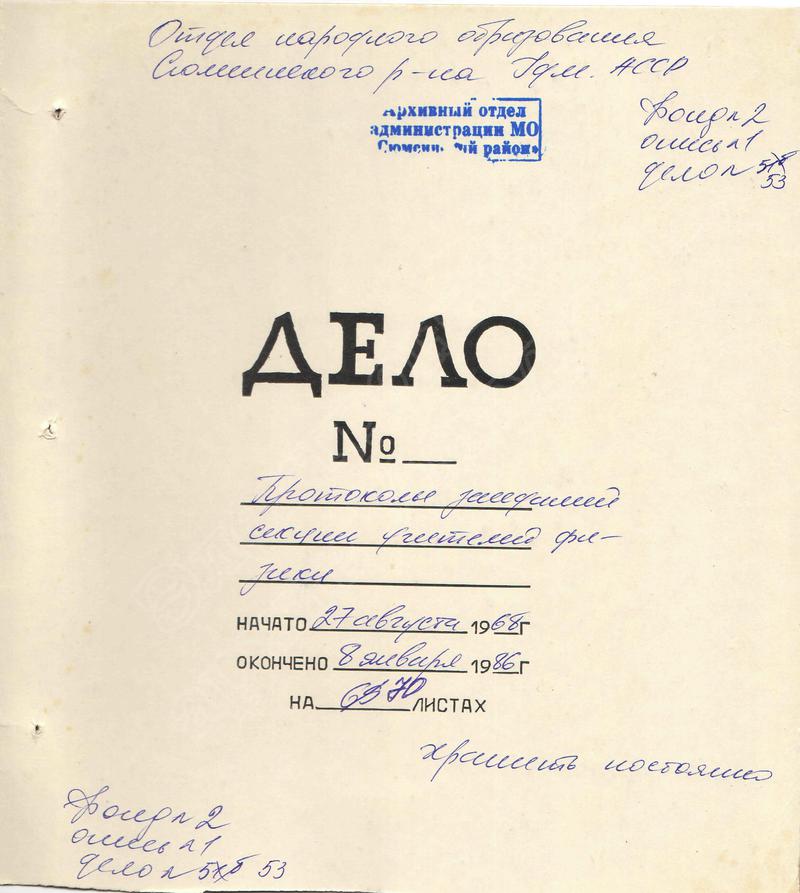 Отдел народного образования
Сюмсинского р-на Удм. АССР
Архивный отдел
администрации МО
Сюмсинский район»
Фонд n 2
опись n 1
дело n 53
ДЕЛО
№
Протоколы заседаний
секции учителей фи-
зики
НАЧАТО 27 августа 1968г
ОКОНЧЕНО 8 января 1986г
НА 70 ЛИСТАХ
хранить постоянно
Фонд n 2
опись n 1
дело n 53